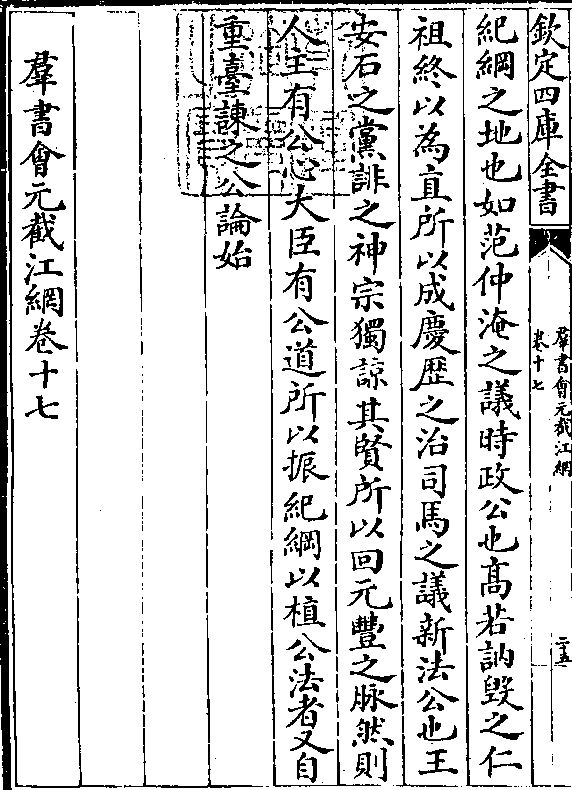 欽定四庫全書
羣書會元截江網
卷十七
二五
紀綱之地也如范仲淹之議時政公也髙若訥毁之仁
祖終以為直所以成慶歴之治司馬之議新法公也王
安石之黨誹之神宗獨諒其賢所以回元豐之脉然則
人主有公心大臣有公道所以振紀綱以植公法者又自
重臺諫之公論始
羣書會元截江網卷十七